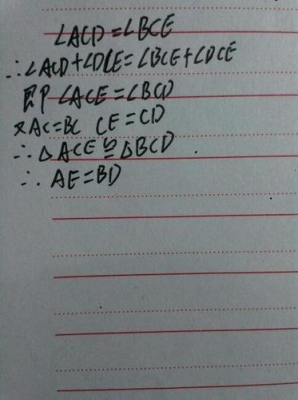 ∠ACD=∠BCE
∴∠ACD+∠DCE=∠BCE+∠DCE
即∠ACE=∠BCD
又AC=BC CE=CD
∴△ACE≌△BCD
∴AE=BD